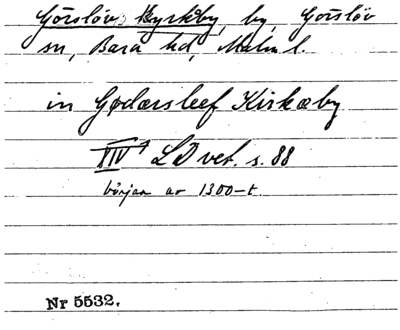 Görslöv Kyrkby, by, Görslöv
sn, Bara hd, Malm l.
in Gødærsleef Kirkæby
XIV 1 LD vet. s. 88
början av 1300-t.
Nr 5532.